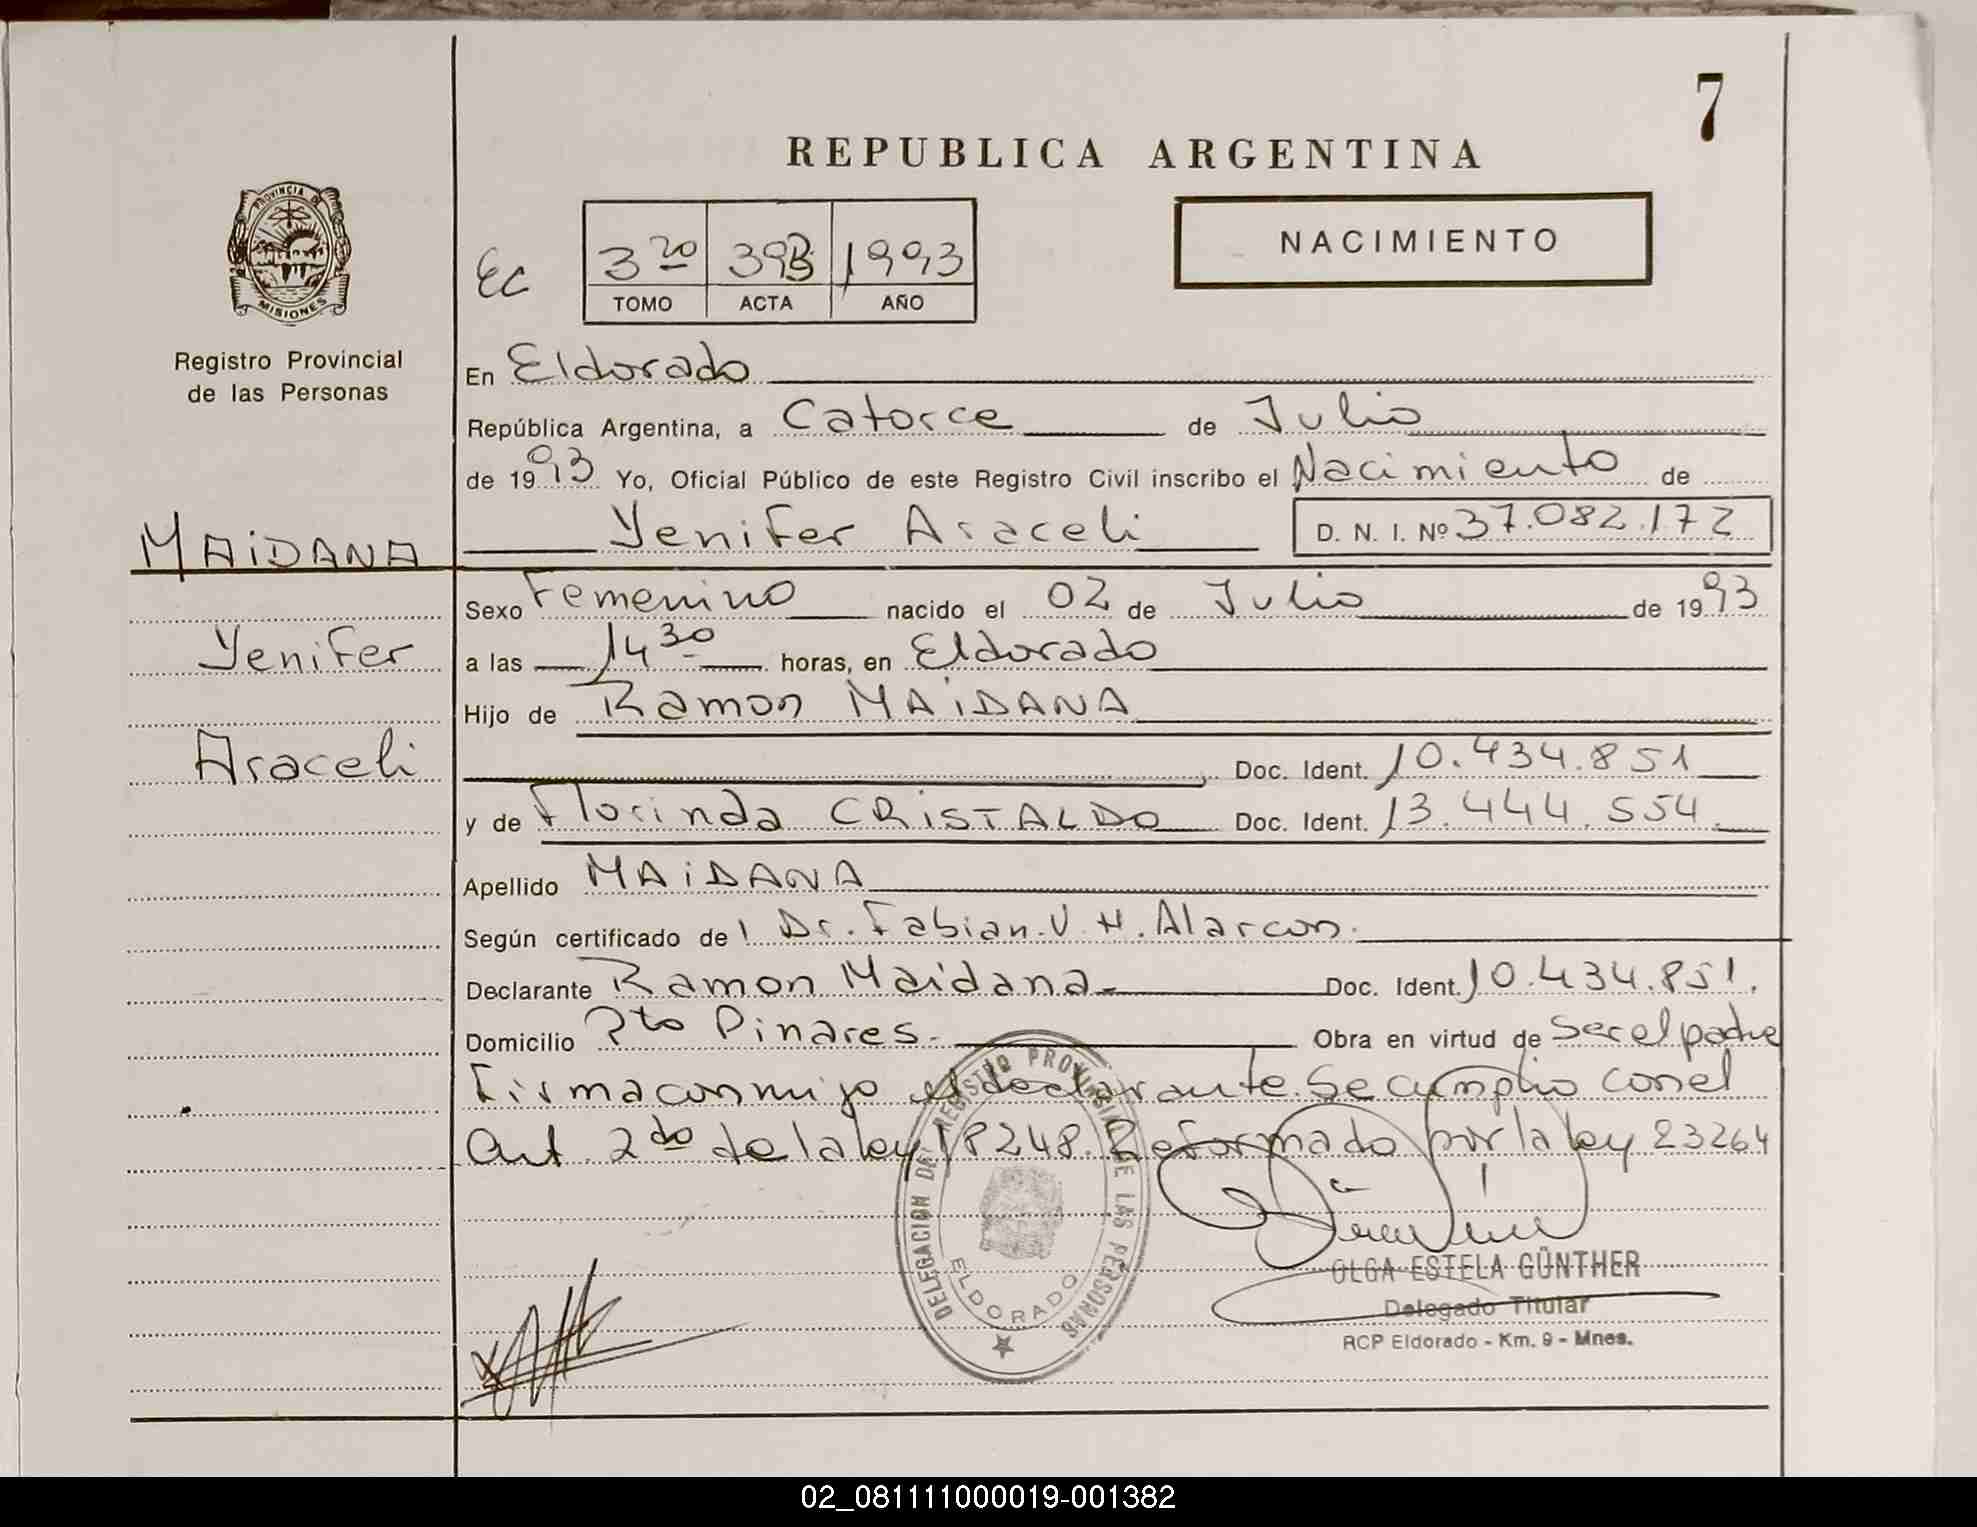 7
REPUBLICA ARGENTINA
PROVINCIA DE
MISIONES
Registro Provincial
de las Personas
Ec
3ro 393 1993
TOMO ACTA AÑO
NACIMIENTO
En Eldorado
República Argentina, a Catorce de Julio
de 1993 Yo, Oficial Público de este Registro Civil inscribo el Nacimiento de
MAiDANA
Yenifer Araceli D. N. I. Nº 37.082.172
Sexo Femenino nacido el 02 de Julio de 1993
Yenifer
a las 14 30 horas, en Eldorado
Hijo de Ramon MAiDANA
Araceli
Doc. Ident. 10.434.851
y de Florinda CRiSTALDO Doc. Ident. 13.444.554.
Apellido MAiDANA
Según certificado de Dr. Fabian V. H. Alarcon.
Declarante Ramon Maidana Doc. Ident. 10.434.851.
Domicilio Pto Pinares. Obra en virtud de ser el padre
Firma conmigo el declarante. Se cumplio con el
Art. 2do de la ley 18248. Reformado por la ley 23264
DELEGACION DEL REGISTRO PROVINCIAL DE LAS PERSONAS
ELDORADO
OLGA ESTELA GÜNTHER
Delegado Titular
RCP Eldorado - Km. 9 - Mnes.
02_081111000019-001382